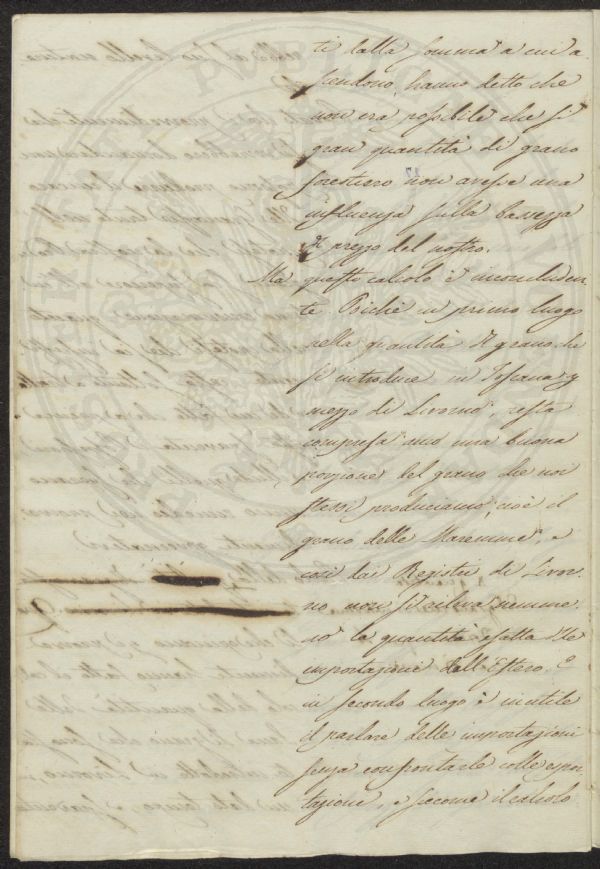 ti dalla somma a cui a
scendono, hanno detto che
non era possibile che sì
gran quantità di grano
forestiero non avesse una
influenza sulla bassezza
di prezzo del nostro.
Ma questo calcolo è inconcluden
te. Poichè in primo luogo
nella quantità di grano che
si introduce in Toscana p
mezzo di Livorno, resta
compresa anco una buona
porzione del grano che noi
stessi produciamo, cioè il
grano delle Maremme, e
così dai Registri di Livor
no non si rileva nemme
no la quantità esatta d'
importazione dall'Estero.
in secondo luogo è inutile
il parlare delle importazioni
senza confrontarle colle espor
tazione, e siccome il calcolo